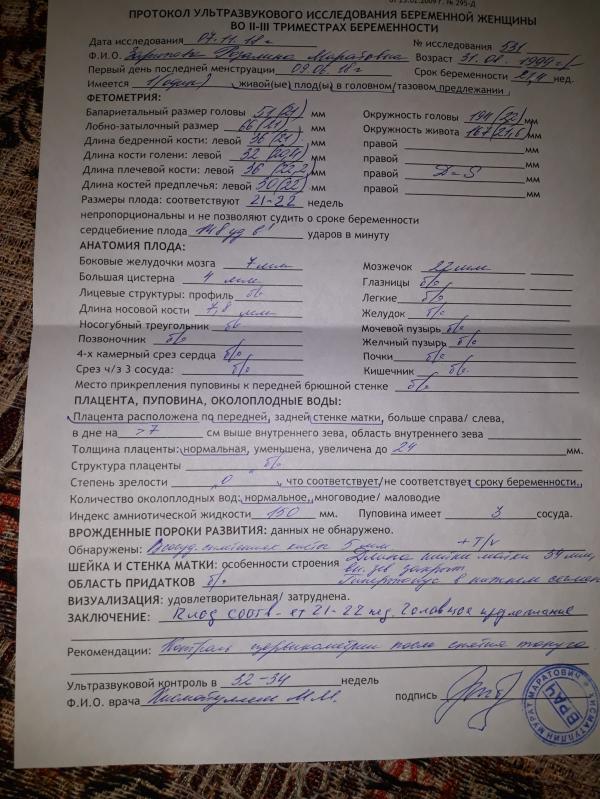 от 25.02.2009 г. № 295-Д
ПРОТОКОЛ УЛЬТРАЗВУКОВОГО ИССЛЕДОВАНИЯ БЕРЕМЕННОЙ ЖЕНЩИНЫ
ВО II-III ТРИМЕСТРАХ БЕРЕМЕННОСТИ
Дата исследования 07.11.18 г № исследования 531
Ф.И.О. Маратовна Возраст 31.08.1999 г
Первый день последней менструации 09.06.18 г Срок беременности 21,4 нед.
Имеется 1 (один) живой(ые) плод(ы) в головном/тазовом предлежании
ФЕТОМЕТРИЯ:
Бапариетальный размер головы 51 (21) мм Окружность головы 194 (22) мм
Лобно-затылочный размер 66 (21) мм Окружность живота 167 (21,6) мм
Длина бедренной кости: левой 36 (21) мм правой мм
Длина кости голени: левой 32 мм правой мм
Длина плечевой кости: левой 36 (22,2) мм правой D=S мм
Длина костей предплечья: левой 30 (22) мм правой мм
Размеры плода: соответствуют 21-22 недель
непропорциональны и не позволяют судить о сроке беременности
сердцебиение плода 148 уд в' ударов в минуту
АНАТОМИЯ ПЛОДА:
Боковые желудочки мозга 7 мм Мозжечок 22 мм
Большая цистерна 4 мм Глазницы б/о
Лицевые структуры: профиль б/о Легкие б/о
Длина носовой кости 7,8 мм Желудок б/о
Носогубный треугольник б/о Мочевой пузырь б/о
Позвоночник б/о Желчный пузырь б/о
4-х камерный срез сердца б/о Почки б/о
Срез ч/з 3 сосуда: б/о Кишечник б/о
Место прикрепления пуповины к передней брюшной стенке б/о
ПЛАЦЕНТА, ПУПОВИНА, ОКОЛОПЛОДНЫЕ ВОДЫ:
Плацента расположена по передней, задней стенке матки, больше справа/ слева,
в дне на >7 см выше внутреннего зева, область внутреннего зева
Толщина плаценты: нормальная, уменьшена, увеличена до 24 мм.
Структура плаценты б/о
Степень зрелости 0, что соответствует/не соответствует сроку беременности.
Количество околоплодных вод: нормальное, многоводие/ маловодие
Индекс амниотической жидкости 150 мм. Пуповина имеет 3 сосуда.
ВРОЖДЕННЫЕ ПОРОКИ РАЗВИТИЯ: данных не обнаружено.
Обнаружены: сплетения киста 5 мм + T/v
ШЕЙКА И СТЕНКА МАТКИ: особенности строения Длина шейки матки 39 мм,
вн. зев закрыт.
ОБЛАСТЬ ПРИДАТКОВ б/о Гипертонус в нижнем
ВИЗУАЛИЗАЦИЯ: удовлетворительная/ затруднена.
ЗАКЛЮЧЕНИЕ: Плод соотв-ет 21-22 нед. Головное предлежание
Рекомендации: Контроль цервикометрии после снятия тонуса
Ультразвуковой контроль в 32-34 недель
Ф.И.О. врача М.М. подпись
ВРАЧ
МУРАТ МАРАТОВИЧ